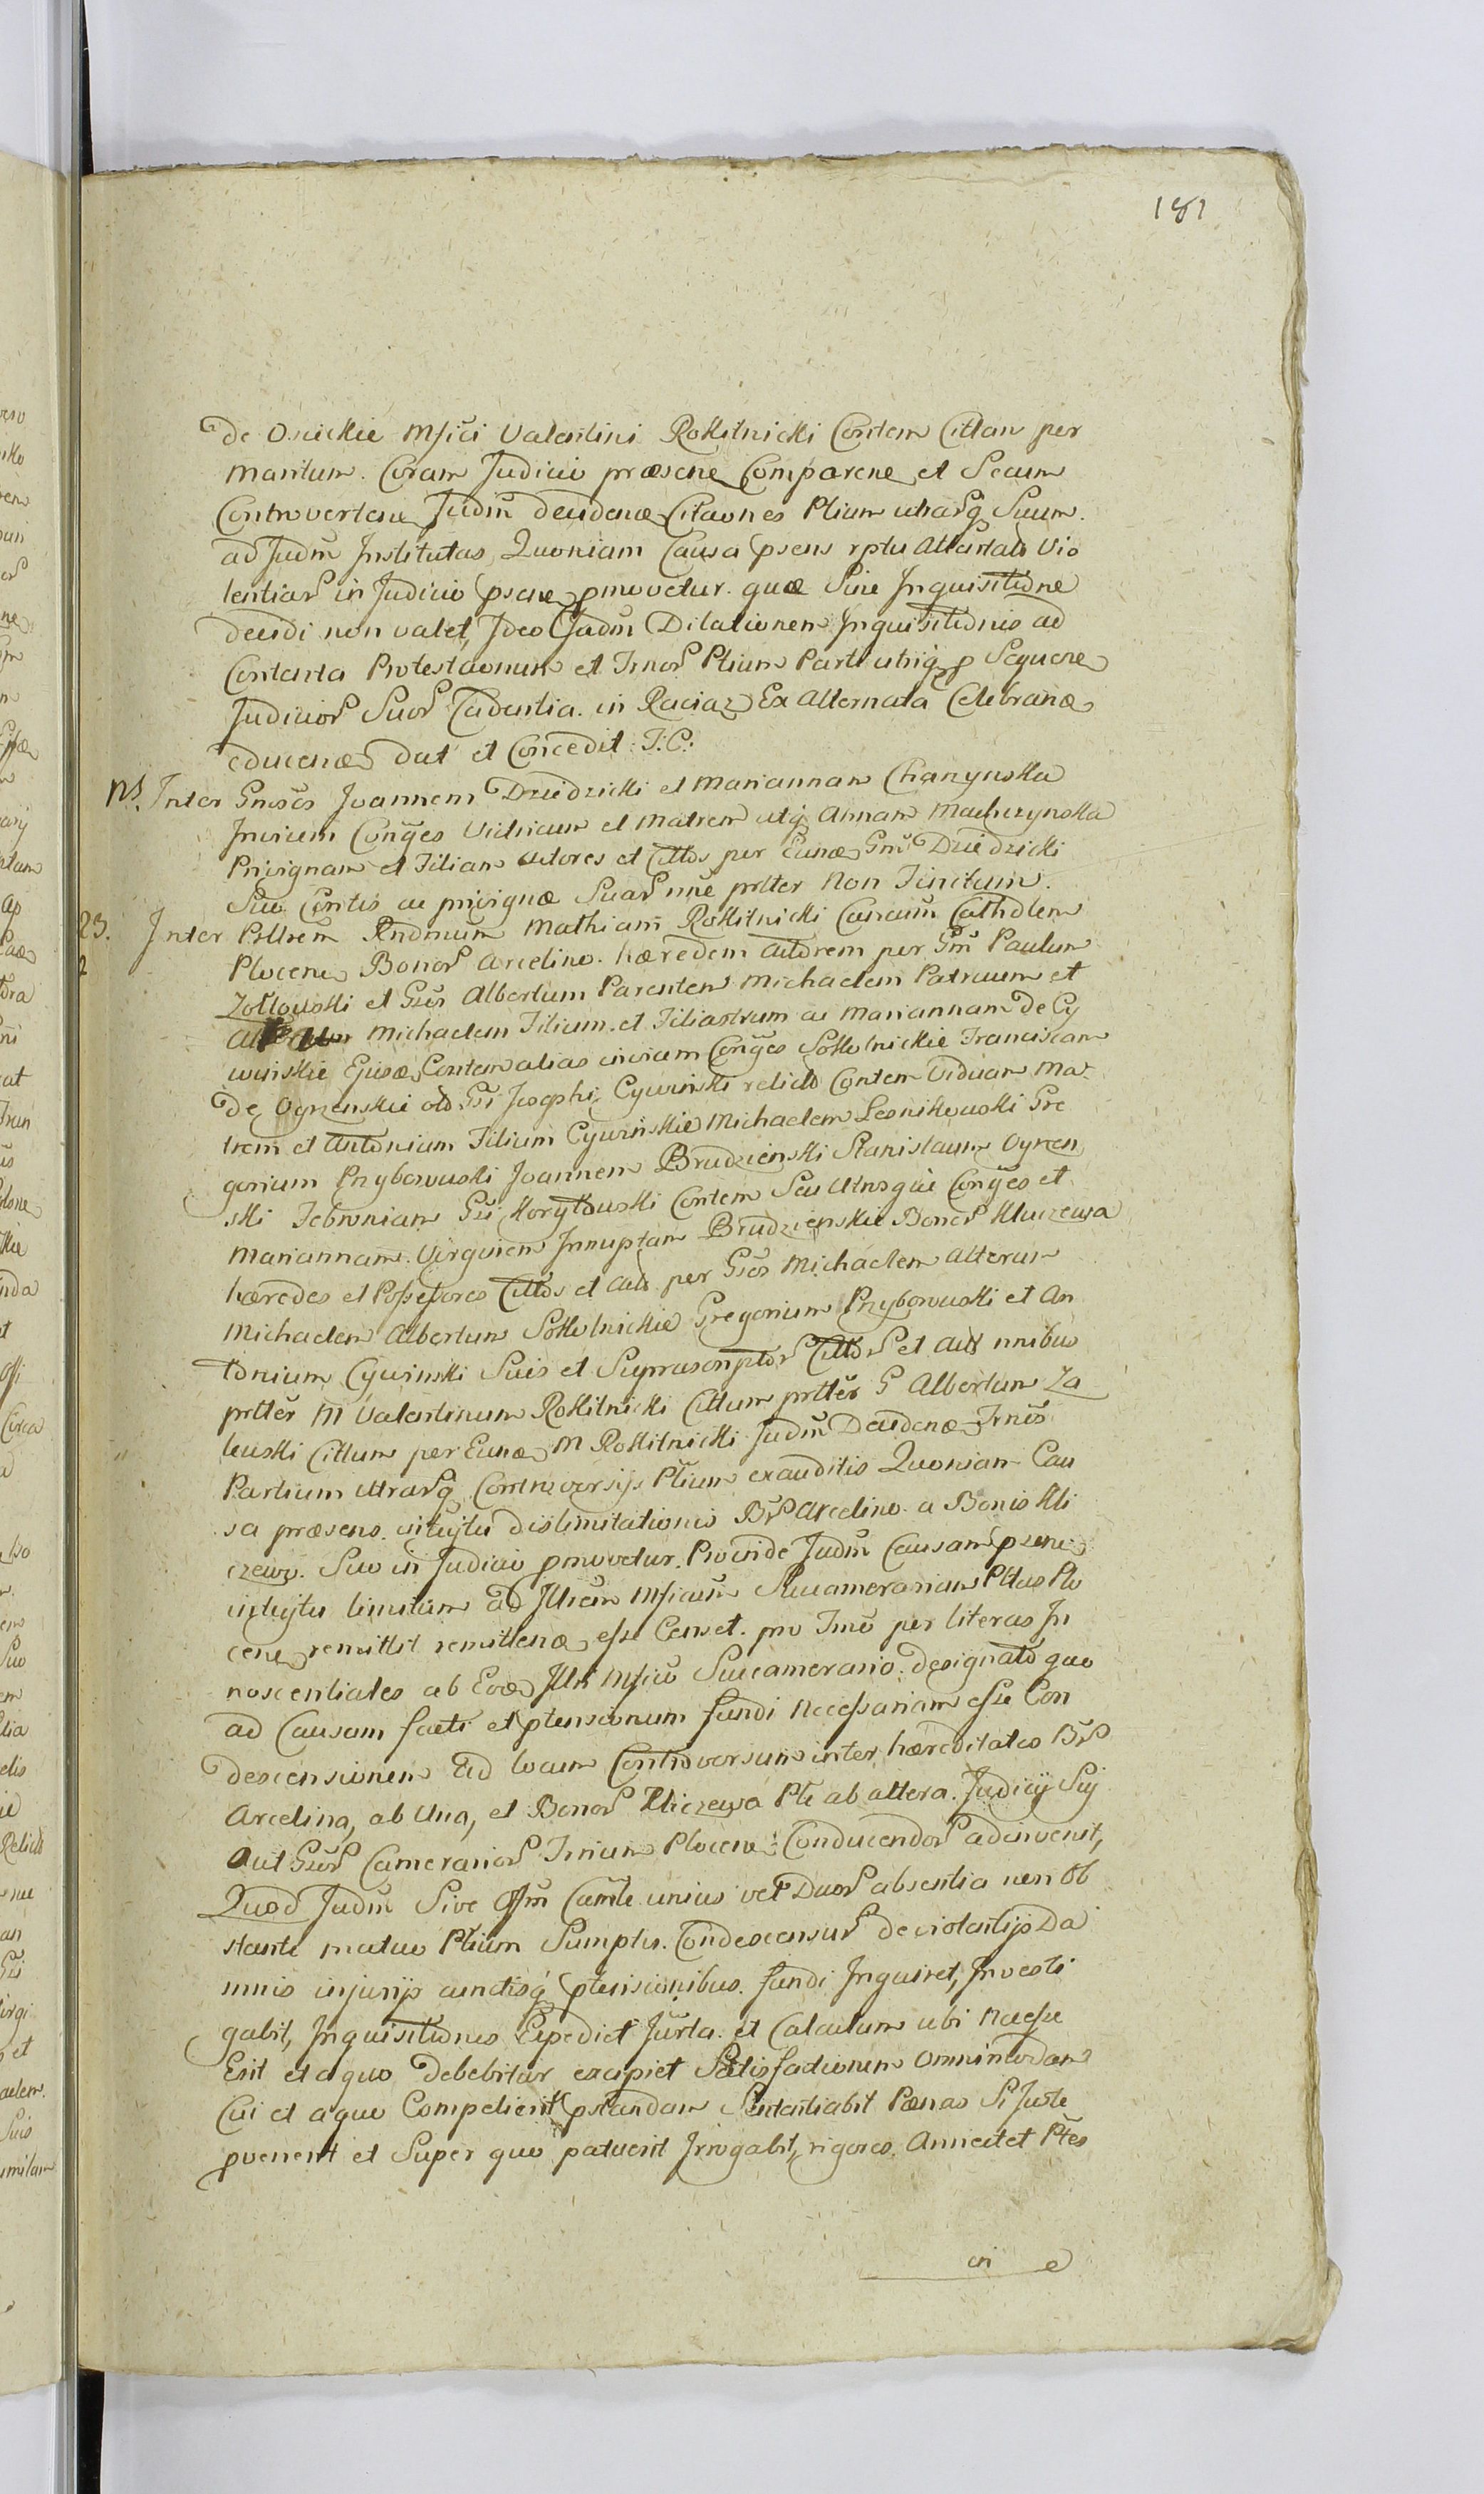 181
de Osieckie Mfici Valentini Rokitnicki Contem Cittan per
Maritum. Coram Judicio præsene Comparene et Secum
Controvertene Judm decidenæ Citaones Ptium utrarq Suum.
ad Judm Institutas, Quoniam Causa psens rptu Attentat Vio
lentiar in Judicio psene pmovetur. quæ Sine Inquisitione
decidi non valet, Ideo Judm Dilationem Inquisitionis ad
Contenta Protestaonum et Trnor Ptium Parti utriq p Sequene
Judicior Suor Cadentia. in Raciaz Ex Alternata Celebranæ
educenæ dat et Concedit: T: C:
Ns. Inter Gnosos Joannem Dziedzicki et Mariannam Charzynska
Invicem Conges Vitricum et Matrem utq Annam Machczynska
Privignam et Filiam Actores et Cittos per Eunæ Gnm Dziedzicki
Suo Contis ac privignæ Suar nne prtter Non Finitum.
23. Inter Pellrem Rndmum Mathiam Rokitnicki Canaum Cathdlem
2
Plocene Bonor Arcelino. hæredem Actorem per Gm Paulum
Zołtowski et Gsos Albertum Parentem Michaelem Patruum et
Michaelem Filium. et Filiastrum ac Mariannam de Cy
winskie Ejusæ Contem alias invicem Conges Sokolnickie Franciscam
De Ogrzenskie olo Gsi Josephi Cywinski relicto Contem Viduam Ma-
trem et Antonium Filium Cywinskie Michaelem Lesnikowski Gre
gorium Przyborowski Joannem Brudzienski Stanislaum Ogrzen
ski Febroniam Gsi Korytowski Contem Seu Utrosque Conges et
Mariannam. Virginem Innuptam Brudzienskie Bonor Kluczewa
hæredes et Possessores Cittos et Act per Gsos Michaelem alterum
Michaelem Albertum Sokolnickie Gregorium Przyborowski et An
tonium Cywinski Suis et Suprascriptor Cittor et Act nnibus
prtter M Valentinum Rokitnicki Cittum prtter G Albertum Za
leuski Cittum per Eunæ M Rokitnicki Judm Decidenæ Trnis
Partium Utrarq Controversijs Ptium exauditis Quoniam Cau
sa præsens. intujtu dislimitationis Br Arcelino a Bonis Kli
czewo. Suo in Judicio pmovetur. Proinde Judm Causam psene
intujtu limitum ad Illrem Mficum Succamerarium Pltus Plo
cene remittit remittenæ esse Censet. pro Tmo per literas In
noscentiales ab Eoæ Illri Mfico Succamerario. designato quo
ad Causam facti et ptensionum fundi Necessariam esse Con
descensionem Ad locum Controversum inter hæreditates Br
Arcelino, ab Una, et Bonor Kliczewa Pte ab altera. Judicij Sij
Aut Gsor Camerarior Trrium Plocene: Conducendor adinvenit,
Quod Judm Sive Offm Camrle unius vel Duor absentia non Ob
stante mutuo Ptium Sumptu. Condescensur de violentijs Da
mnis injurijs cunctisq ptensionibus. fundi Inquiret, Investi
gabit, Inquisitiones Expediet Jurta. et Calculum ubi Necesse
Erit et a quo debebitur excipiet Satisfactionem omnimodam
Cui et a quo Competierit pstandam Sententiabit Pænas Si Juste
pvenerit et Super quo patuerit Irrogabit, rigores. Annectet Ptes